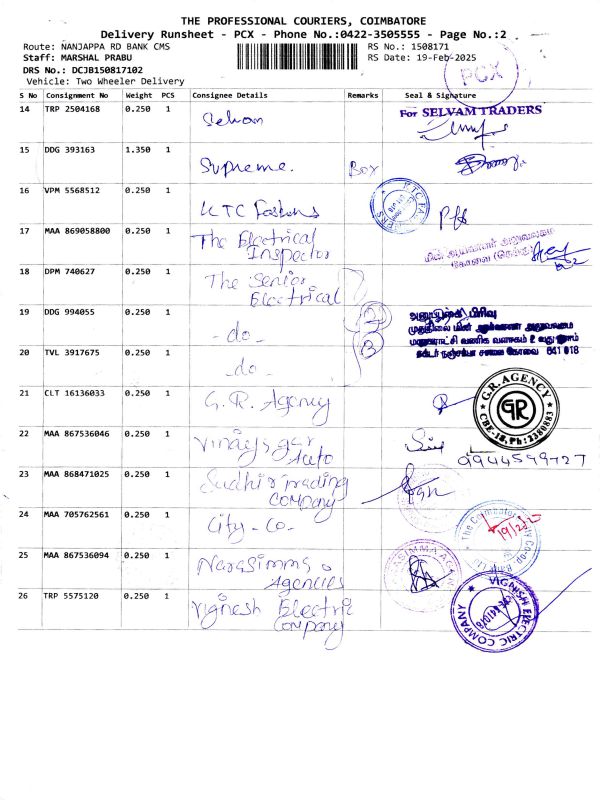 THE PROFESSIONAL COURIERS, COIMBATORE
Delivery Runsheet - PCX - Phone No.:0422-3505555 - Page No.:2
Route: NANJAPPA RD BANK CMS
RS No.: 1508171
Staff: MARSHAL PRABU
RS Date: 19-Feb-2025
DRS No.: DCJB150817102
Vehicle: Two Wheeler Delivery
PCX
S No Consignment No Weight PCS Consignee Details Remarks Seal & Signature
14 TRP 2504168 0.250 1 Selvam For SELVAM TRADERS
15 DDG 393163 1.350 1 Supreme. Box
16 VPM 5568512 0.250 1 KTC Fastons
17 MAA 869058800 0.250 1 The Electrical
Inspector
18 DPM 740627 0.250 1 The Senior
Electrical
19 DDG 994055 0.250 1 - do -
அனுப்புகை பிரிவு
20 TVL 3917675 0.250 1 - do -
641 018
21 CLT 16136033 0.250 1 G.R. Agency G.R. AGENCY
GR
CBE-18, Ph: 2380883
22 MAA 867536046 0.250 1 Vinaysgar
Auto
9944599727
23 MAA 868471025 0.250 1 Sudhir Trading
Company
24 MAA 705762561 0.250 1 City - Co -
25 MAA 867536094 0.250 1 Narasimma
Agencies
26 TRP 5575120 0.250 1 Vignesh Electric
Company
VIGNISH ELECTRIC COMPANY